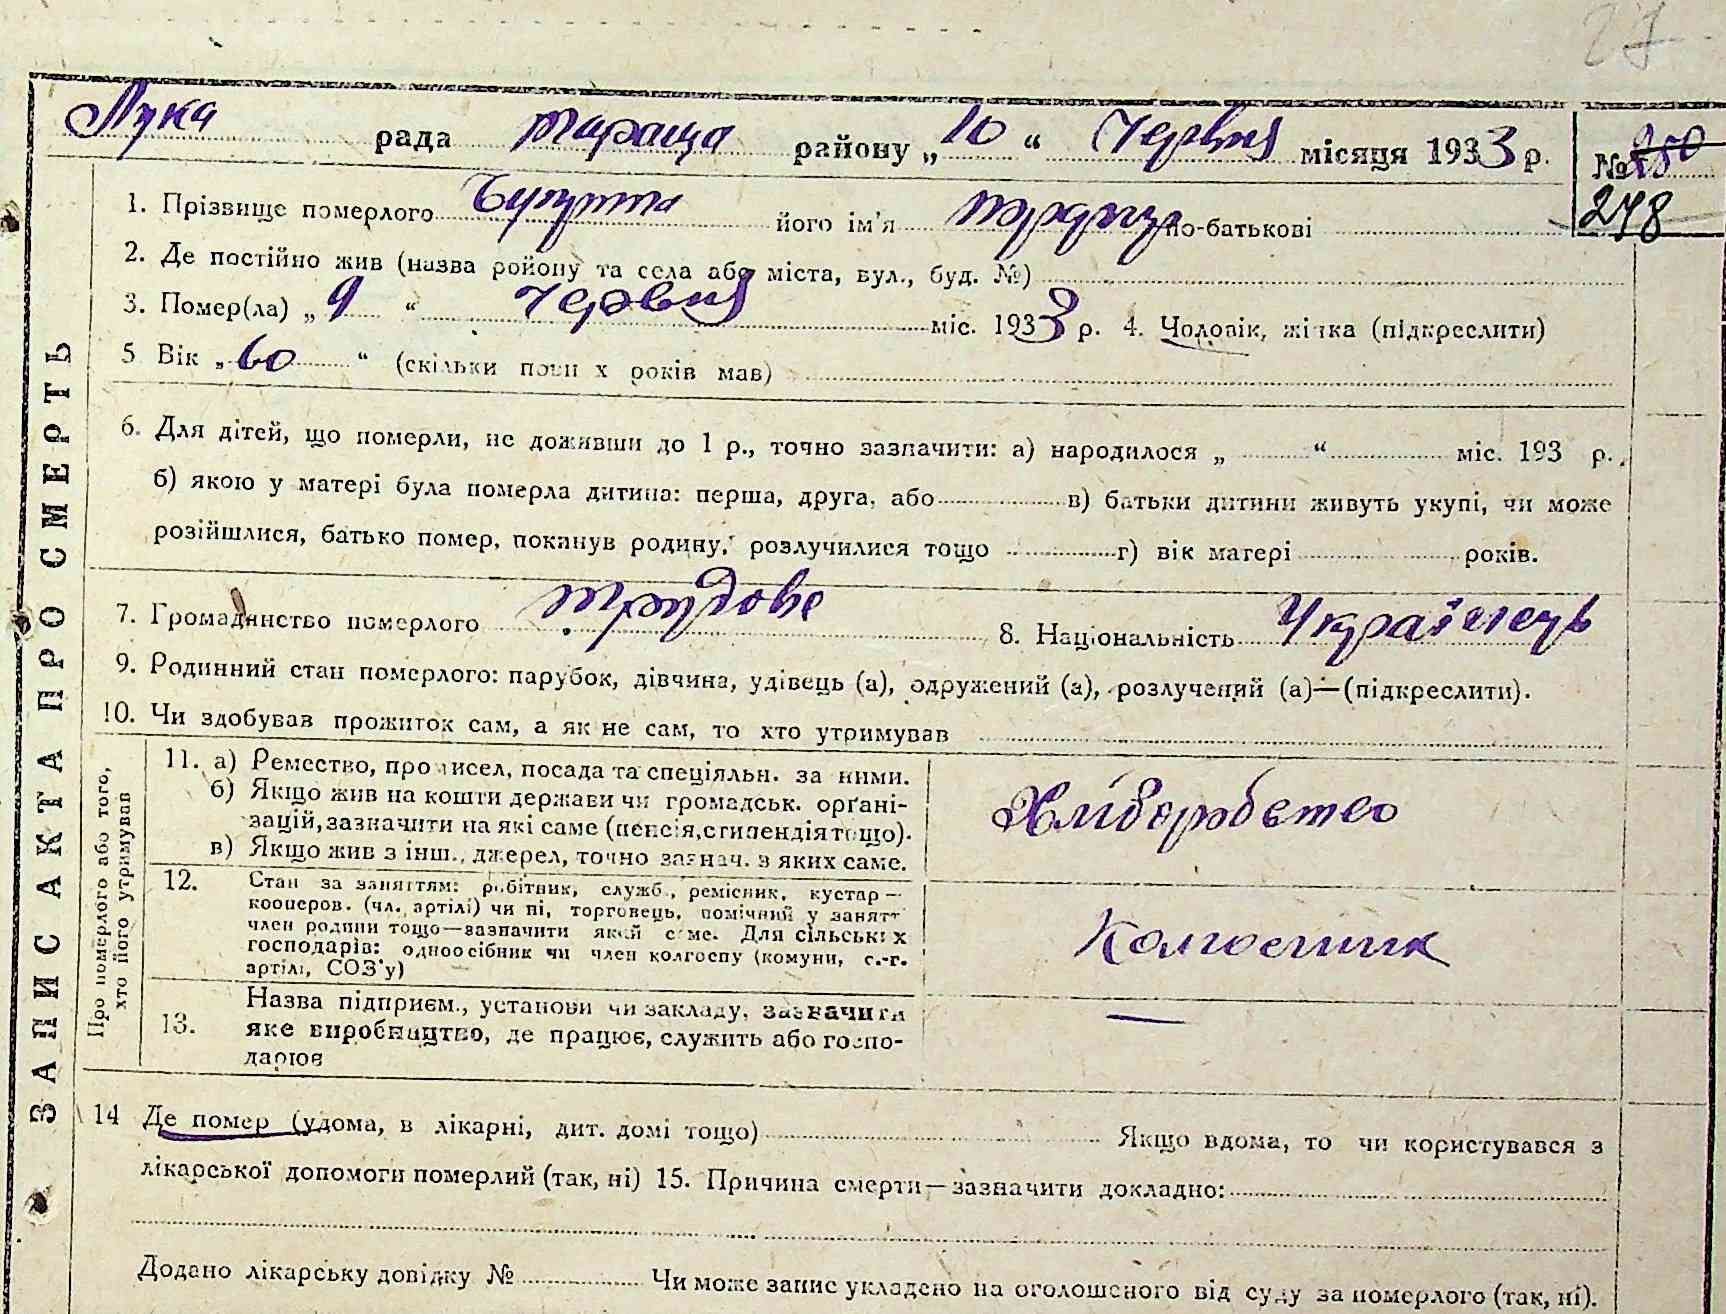 27
Лука рада Тараща району „10“ Червня місяця 1933 р.
№ 250
278
1. Прізвище померлого його ім'я по-батькові
2. Де постійно жив (назва ройону та села або міста, вул., буд. №)
3. Помер(ла) „9“ Червня міс. 1933 р. 4. Чоловік, жінка (підкреслити)
5 Вік „60“ (скільки повн х років мав)
6. Для дітей, що померли, не доживши до 1 р., точно зазначити: а) народилося „ “ міс. 193 р.
б) якою у матері була померла дитина: перша, друга, або в) батьки дитини живуть укупі, чи може
розійшлися, батько помер, покинув родину, розлучилися тощо г) вік матері років.
7. Громадянство померлого трудове 8. Національність Українець
9. Родинний стан померлого: парубок, дівчина, удівець (а), одружений (а), розлучений (а)—(підкреслити).
10. Чи здобував прожиток сам, а як не сам, то хто утримував
ЗАПИС АКТА ПРО СМЕРТЬ
Про померлого або того,
хто його утримував
11. а) Ремество, промисел, посада та спеціяльн. за ними.
б) Якщо жив на кошти держави чи громадськ. органі-
зацій, зазначити на які саме (пенсія, стипендія тощо).
в) Якщо жив з інш., джерел, точно зазнач. з яких саме.
Хліборобство
12. Стан за заняттям: робітник, служб., ремісник, кустар—
кооперов. (чл. артілі) чи ні, торговець, помічний у занятт
член родини тощо—зазначити який саме. Для сільських
господарів: одноосібник чи член колгоспу (комуни, с.-г.
артілі, СОЗ'у)
Колгоспник
13. Назва підприєм., установи чи закладу, зазначити
яке виробництво, де працює, служить або госпо-
дарює
—
14 Де помер (удома, в лікарні, дит. домі тощо) Якщо вдома, то чи користувався з
лікарської допомоги померлий (так, ні) 15. Причина смерти—зазначити докладно:
Додано лікарську довідку № Чи може запис укладено на оголошеного від суду за померлого (так, ні).